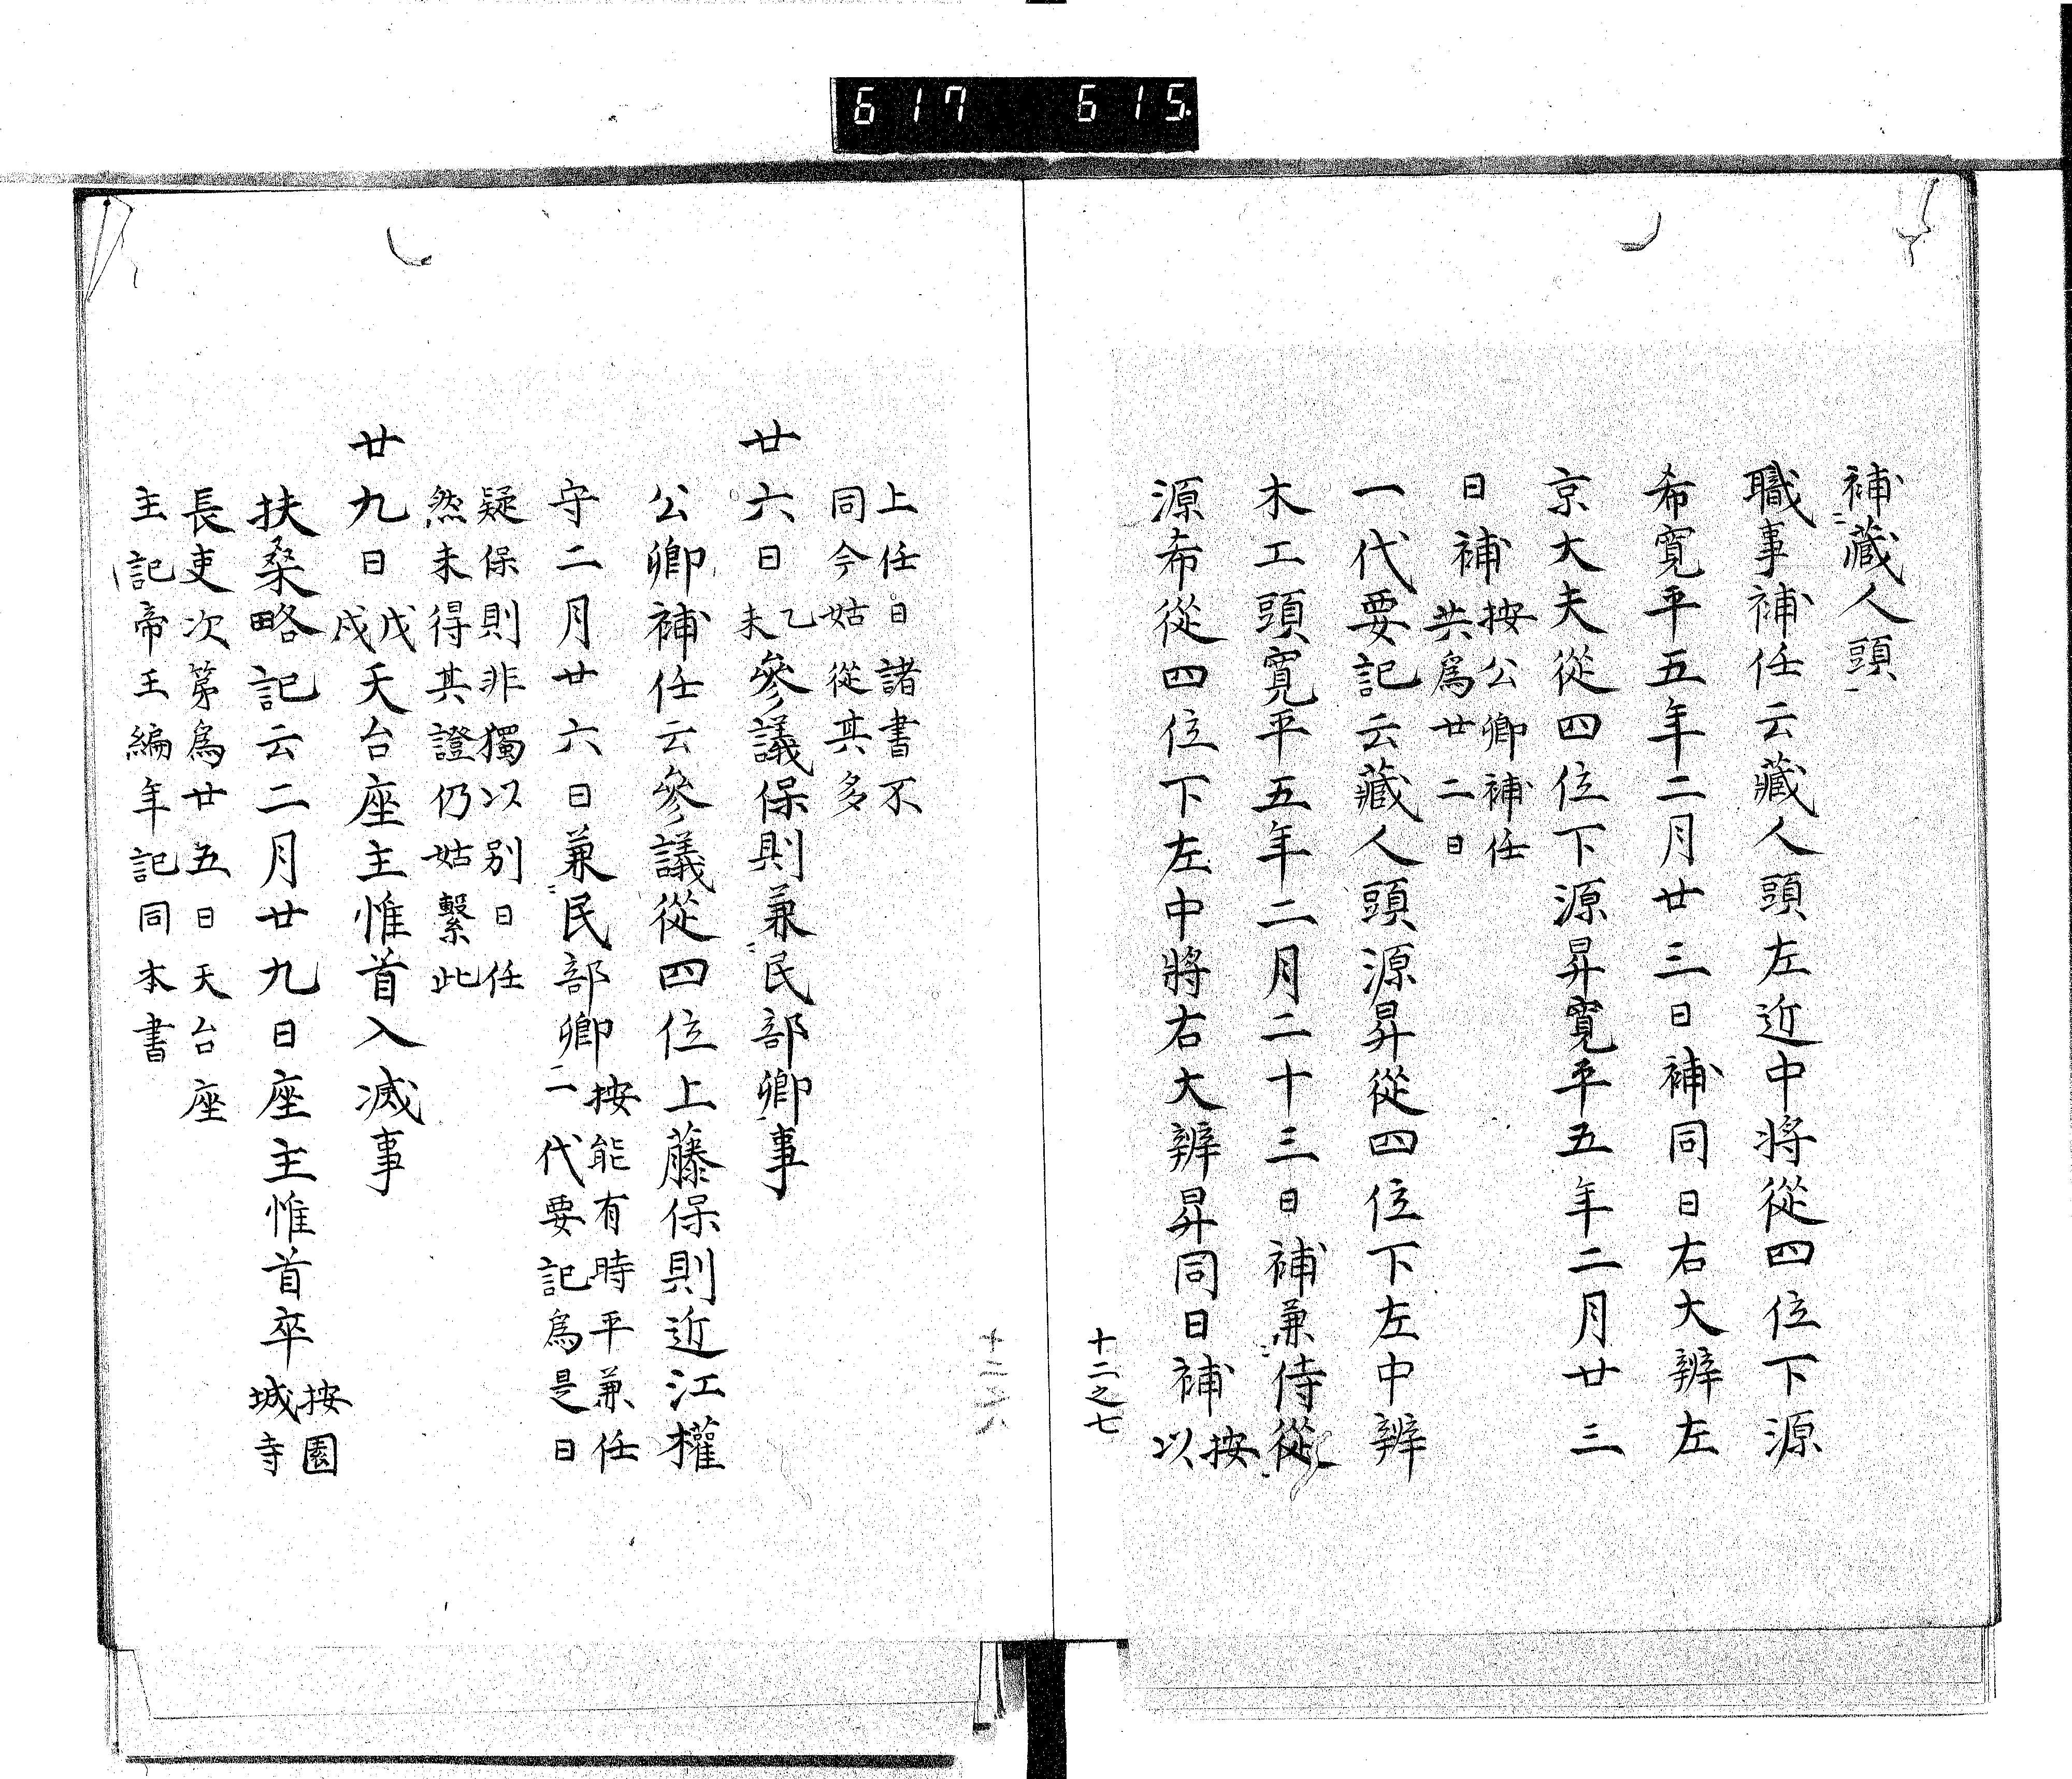 617 615
補藏人頭
職事補任云藏人頭左近中將從四位下源
希寛平五年二月廿三日補同日右大辨左
京大夫從四位下源昇寛平五年二月廿三
日補按公卿補任
共爲廿二日
一代要記云藏人頭源昇從四位下左中辨
木工頭寛平五年二月二十三日補兼侍從
源希從四位下左中將右大辨昇同日補按
以
十二之七
上任日諸書不
同今姑從其多
廿六日乙
未參議保則兼民部卿事
公卿補任云參議從四位上藤保則近江權
守二月廿六日兼民部卿按能有時平兼任
二代要記爲是日
疑保則非獨以別日任
然未得其證仍姑繫此
廿九日戊
戌天台座主惟首入滅事
扶桑略記云二月廿九日座主惟首卒按園
城寺
長吏次第爲廿五日天台座
主記帝王編年記同本書